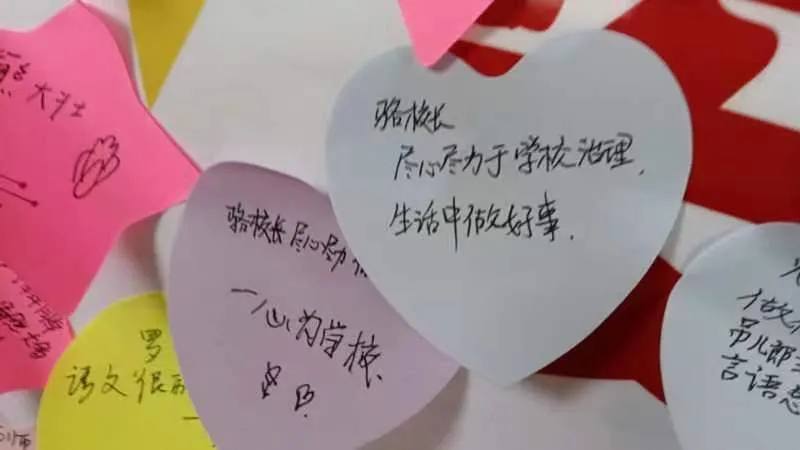 大斗士
骆校长
尽心尽力于学校治理,
生活中做好事.
骆校长尽心尽力
一心为学校
罗
语文很
做
吊儿郎
言语